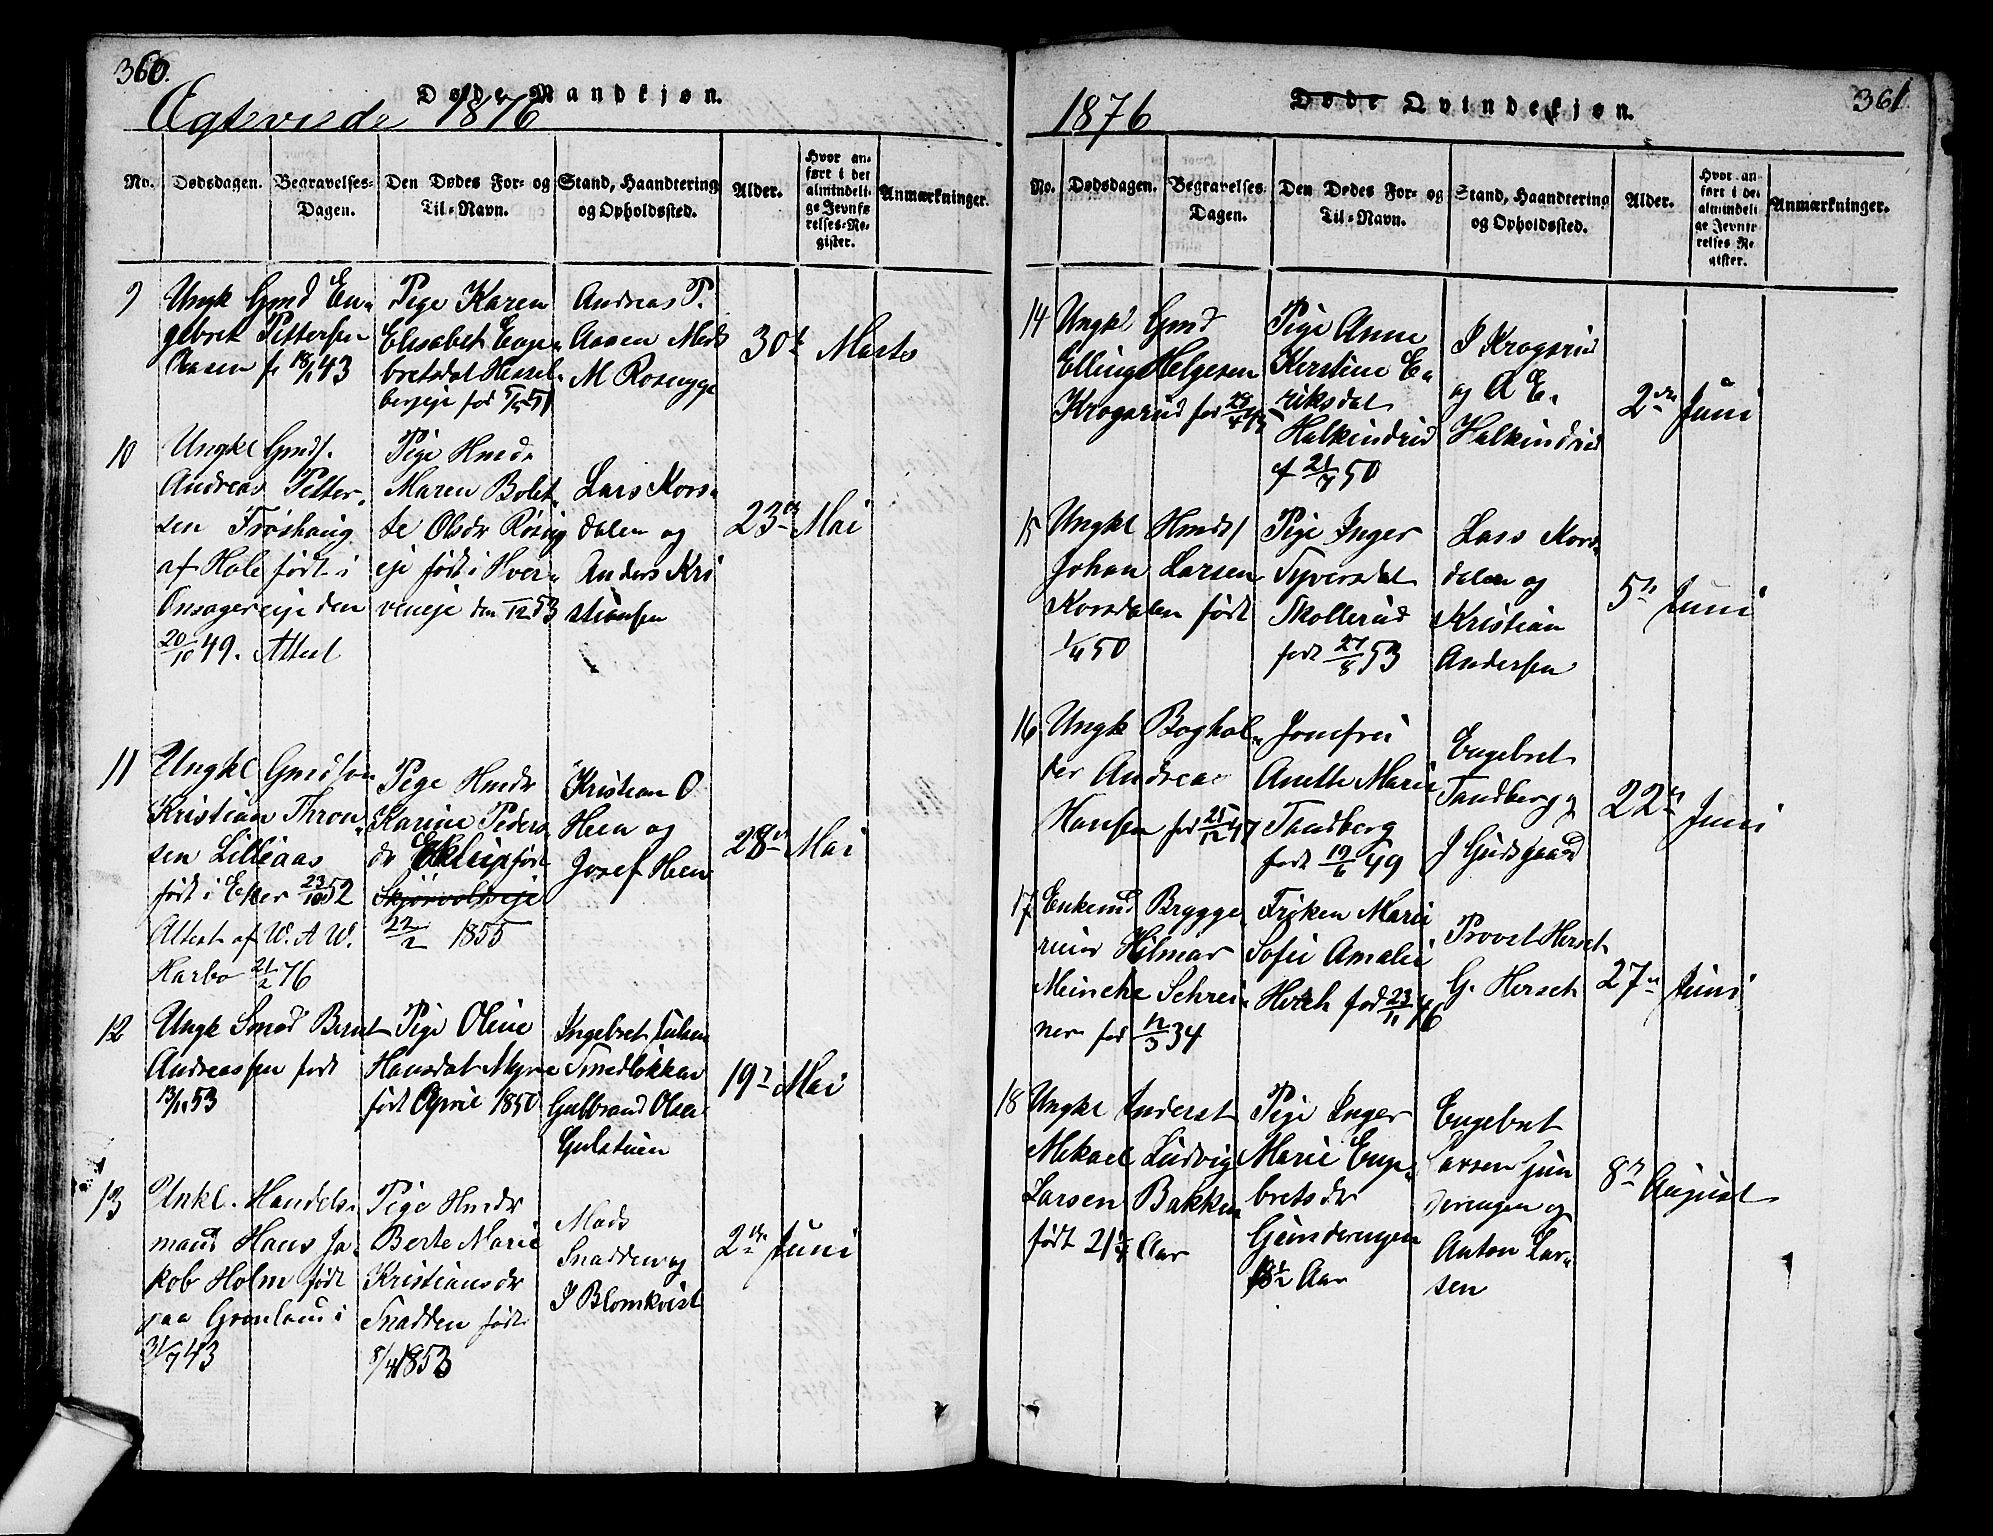 360.
Døde Mandkjøn.
Ægteviede 1876
No. Dødsdagen. Begravelses-Dagen. Den Dødes For- og Til-Navn. Stand, Haandtering og Opholdssted. Alder. Hvor anført i det almindelige Jevnførelses-Register. Anmærkninger.
9
Ungk Gmd En-
gebret Pettersen
Aasen f. 18/1 43
Pige Karen
Elisabet Enge-
bretsdat Hessel-
bergeje fød
Andreas P.
Aasen Mads
M Rosengge
30t Marts
10
Ungkl Gmds.
Andreas Petter-
sen Frøshaug
af Hole født i
Onsagereje den
20/10 49. Attest
Pige Hmd.
Maren Bolet-
te Olsdr Røsig
eje født i Hver-
veneje den /12 53
Lars Kors-
dalen og
Anders Kri
stiansen
23de Mai
11
Ungkl Gmdson
Kristian Thron-
sen Lilleaas
født i Eker 23/10 52
Attest af W. A W.
Harbo 21/2 76
Pige Hmdr
Karine Peders-
dr født
Skjørvoldseje
22/2 1855
Kristian O
Heen og
Josef Heen
28de Mai
12
Ungk Smed Bernt
Andreassen født
13/11 53
Pige Oline
Hansdat Myre
født April 1850
Ingebret
Smedløkken
Gulbrand Olsen
Gulstuen
19de Mai
13
Unkl. Handels-
mand Hans Ja-
kob Holm født
paa Grønland i
31/7 43
Pige Hmdr
Berte Marie
Kristiansdr
Snadden født
8/4 1853
Mads
Snadden og
J Blomkvist
2den Juni
361
1876
Døde Qvindekjøn.
No. Dødsdagen. Begravelses-Dagen. Den Dødes For- og Til-Navn. Stand, Haandtering og Opholdssted. Alder. Hvor anført i det almindelige Jevnførelses Register. Anmærkninger.
14
Ungkl Gmd
Elling Helgesen
Krogsrud fød
Pige Anne
Kerstine E-
riksdat
Halkindrud
f 21/7 50
J Krogsrud
og A E.
Halkindrud
2den Juni
15
Ungkl Hmds
Johan Larsen
Korsdalen født
1/4 50
Pige Inger
Syversdat
Skollerud
født 27/8 53
Lars Kors-
dalen og
Kristian
Andersen
5te Juni
16
Ungk Boghol-
der Andreas
Hansen fød 25/12 47
Jomfru
Anette Marie
Tandberg
født 19/6 49
Engebret
Tandberg og
J Gudsgaard
22de Juni
17
Enkemd Brygge
rieier Hilmar
Meincke Schrei-
ner fød 12/3 34
Frøken Marie
Sofie Amalie
Hersch fød 23/11 46
Provst Hersch
G. Hersch
27de Juni
18
Ungkl Inderst
Mikael Ludvig
Larsen Bakken
født 21 Aar
Pige Inger
Marie Enge-
bretsdr
Gunderengen
18½ Aar
Engebret
Larsen Gun
derengen og
Anton Lar-
sen
8de August